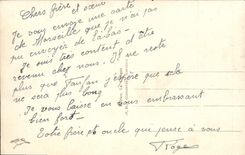 Chers frère et sœur
Je vous envoie une carte
de Marseille que je n'ai pas
pu envoyer de là-bas.
Je suis très content d'être
revenu chez nous. Il ne reste
plus que j'espère que cela
ne sera plus long
Je vous laisse en vous embrassant
bien fort.
Votre frère et qui pense à vous
Roger